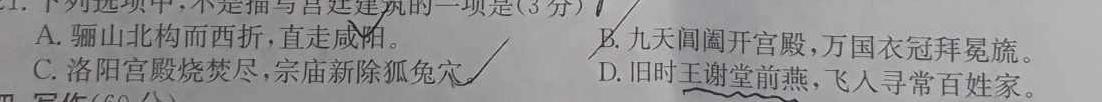 21. 下列选项中，不是描写宫廷建筑的一项是(3分)
A. 骊山北构而西折，直走咸阳。 B. 九天阊阖开宫殿，万国衣冠拜冕旒。
C. 洛阳宫殿烧焚尽，宗庙新除狐兔穴。 D. 旧时王谢堂前燕，飞入寻常百姓家。